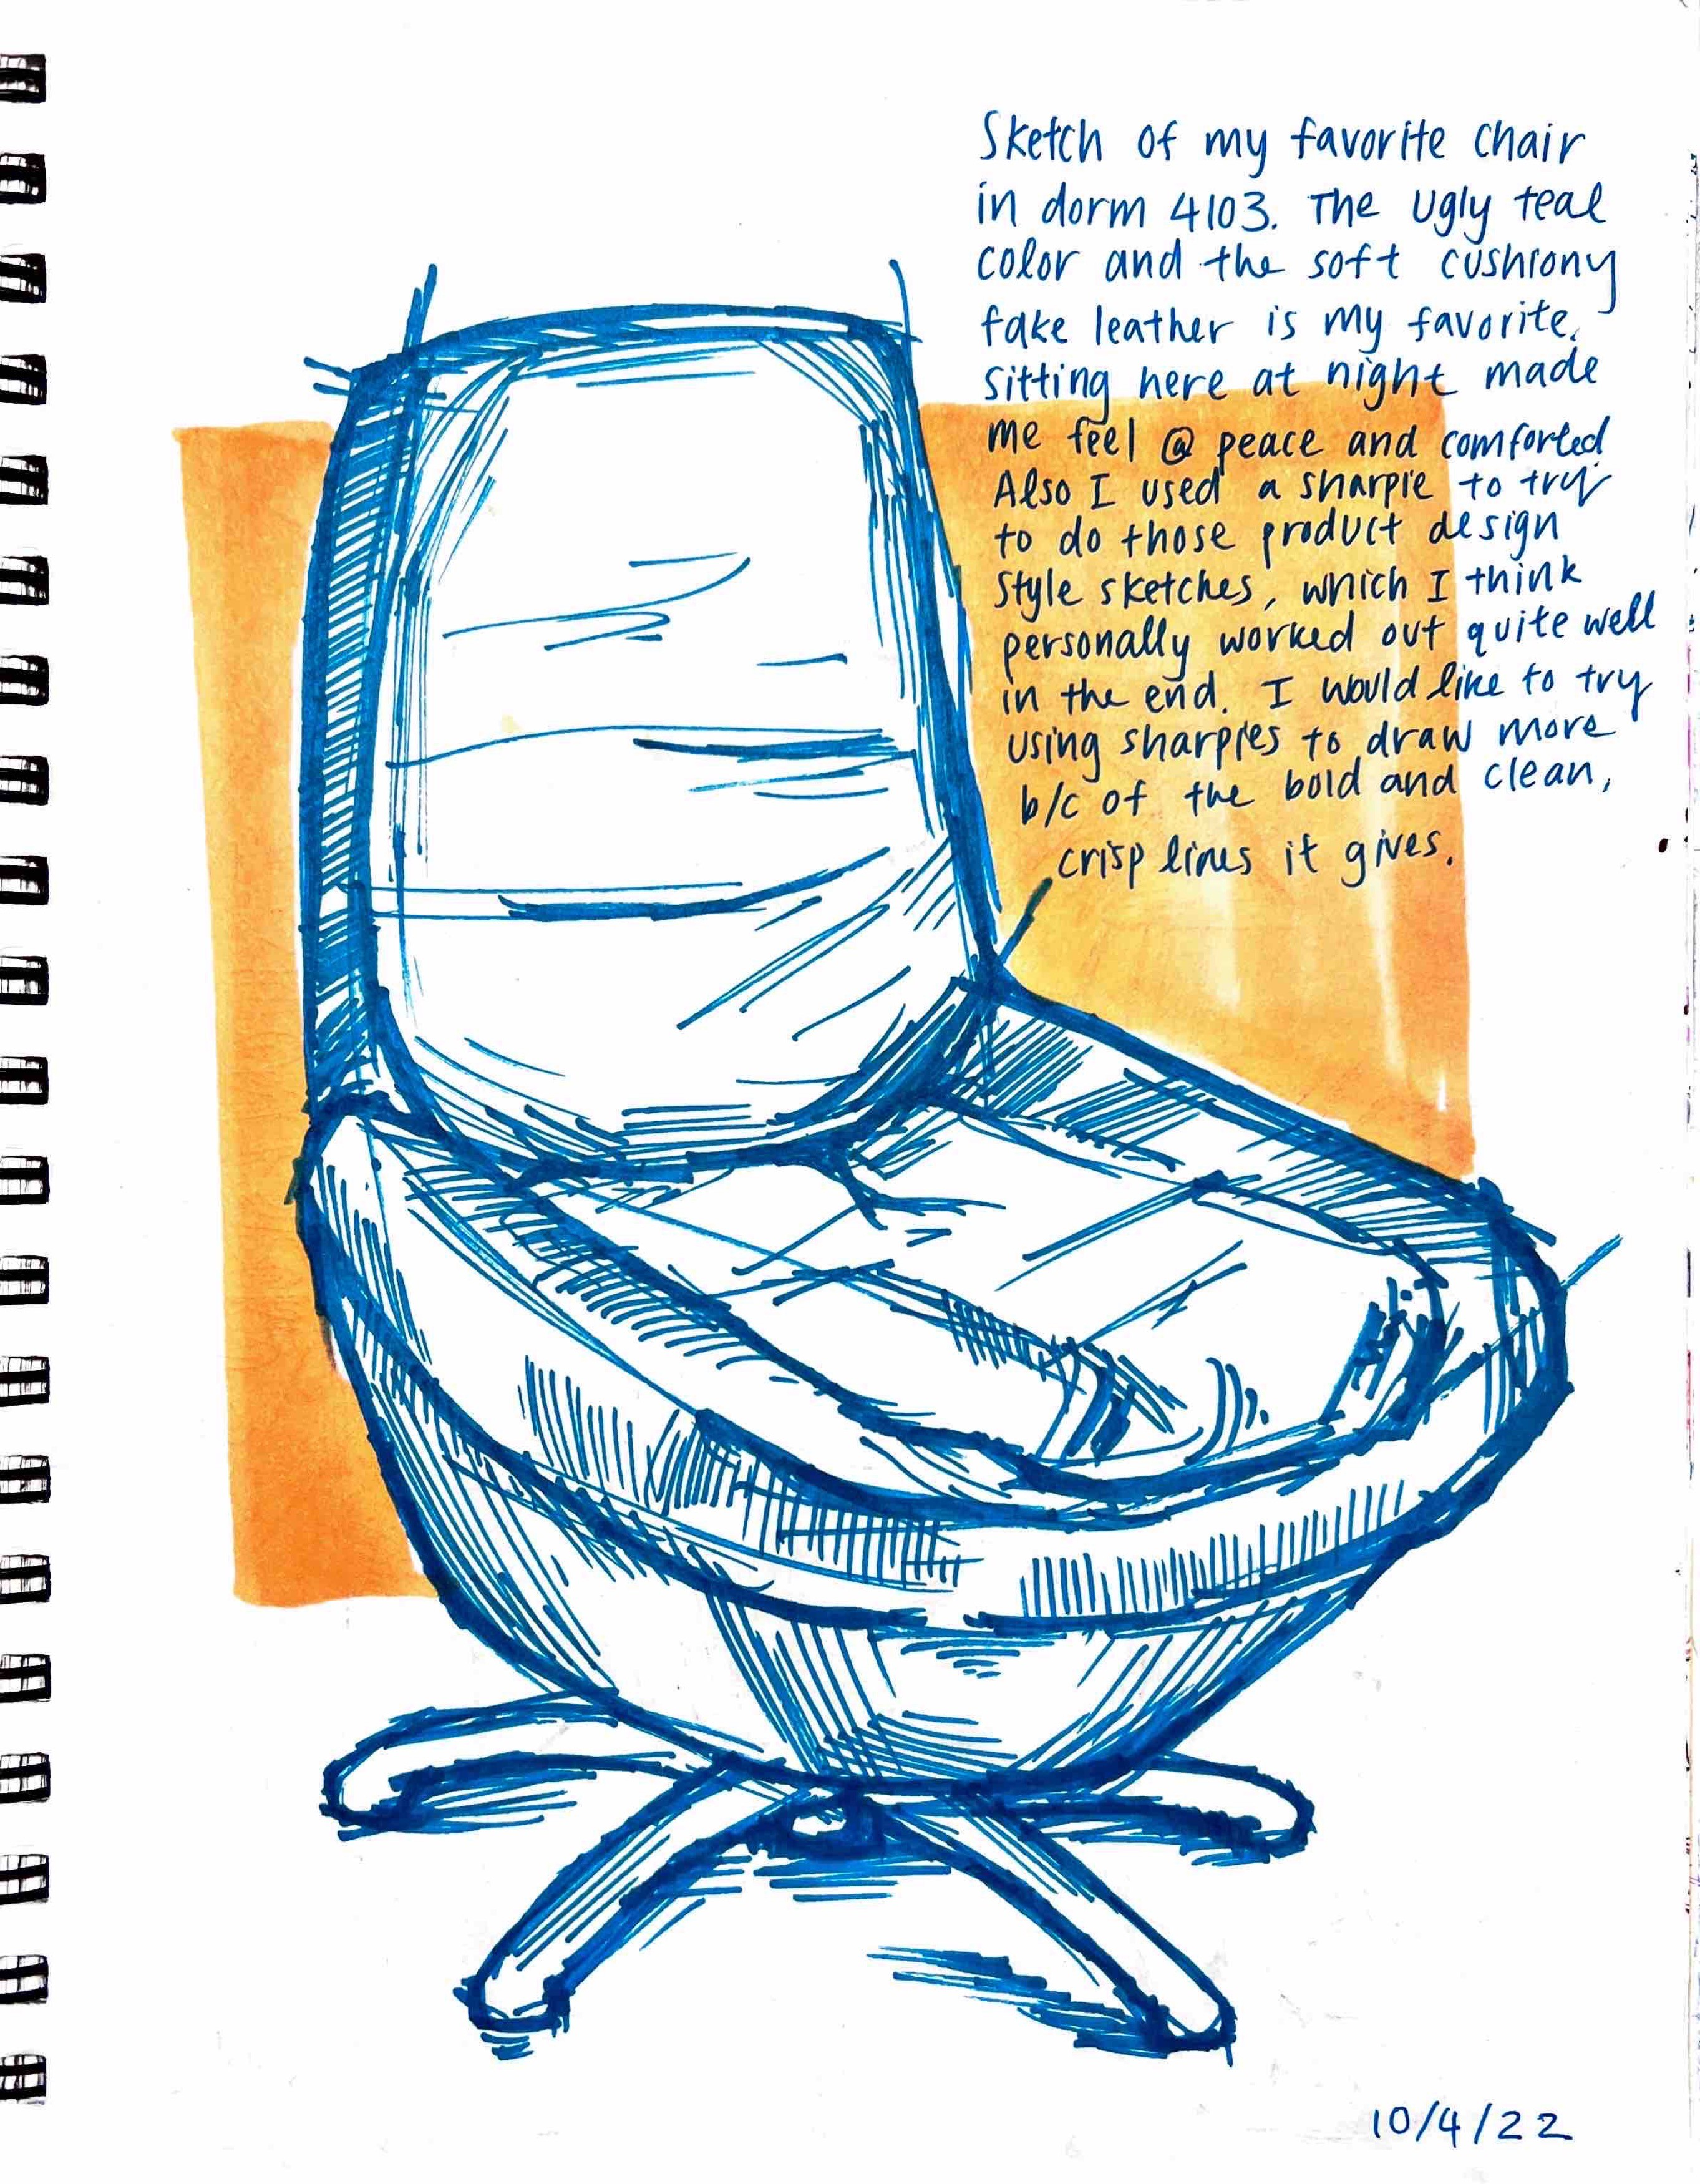 Sketch of my favorite chair
in dorm 4103. The ugly teal
color and the soft cushiony
fake leather is my favorite.
Sitting here at night made
me feel @ peace and comforted.
Also I used a sharpie to try
to do those product design
style sketches, which I think
personally worked out quite well
in the end. I would like to try
using sharpies to draw more
b/c of the bold and clean,
crisp lines it gives.
10/4/22